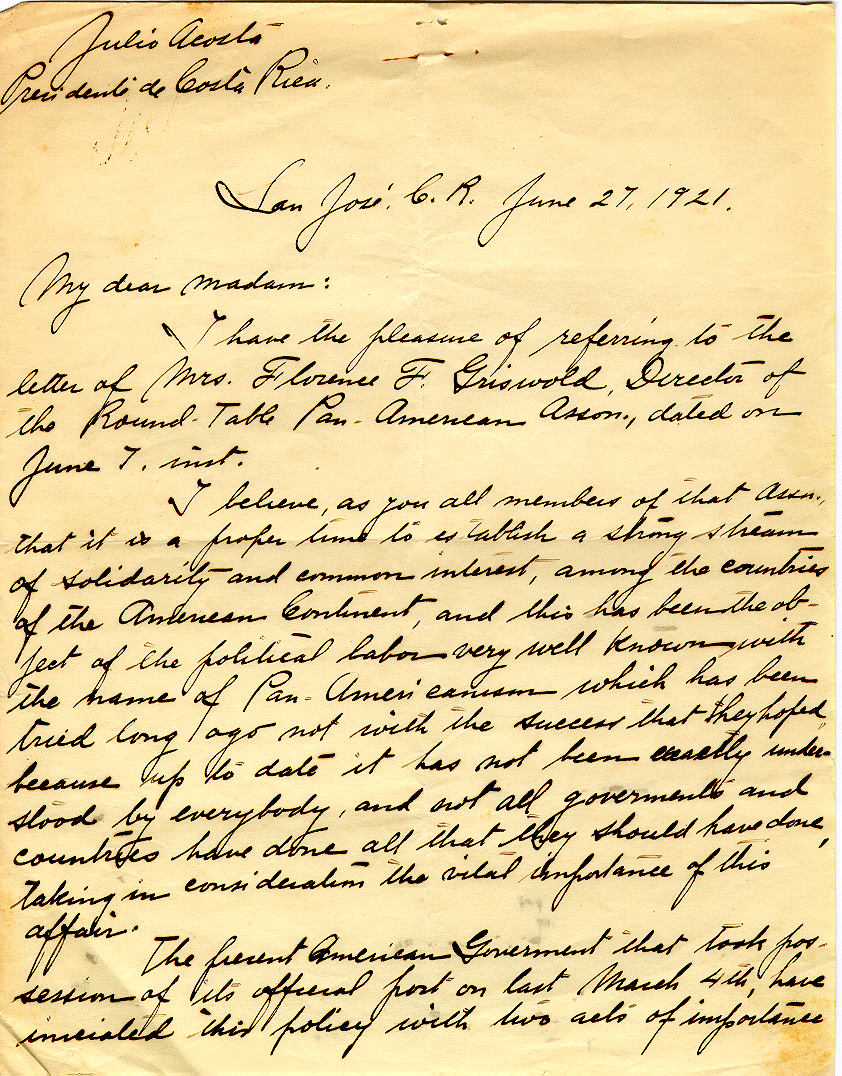 Julio Acosta
Presidente de Costa Rica.
San José, C. R. June 27, 1921.
My dear madam:
I have the pleasure of referring to the
letter of Mrs. Florence F. Griswold, Director of
the Round-Table Pan-American Asson., dated on
June 7. inst.
I believe, as you all members of that Assn.,
that it is a proper time to establish a strong stream
of solidarity and common interest, among the countries
of the American Continent, and this has been the ob-
ject of the political labor very well known with
the name of Pan-Americanism which has been
tried long ago not with the success that they hoped,
because up to date it has not been exactly under-
stood by everybody, and not all goverments and
countries have done all that they should have done,
taking in consideration the vital importance of this
affair.
The present American Goverment that took pos-
session of its official post on last March 4th, have
iniciated this policy with two acts of importance